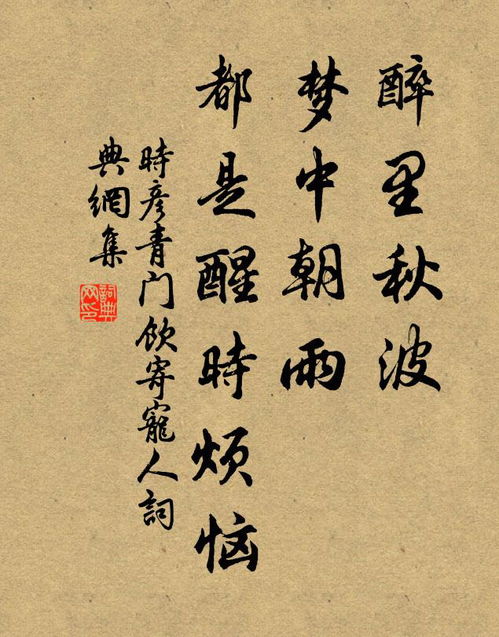 醉里秋波
梦中朝雨
都是醒时烦恼
時彦青门饮寄寵人詞
典網集
詞典
网印